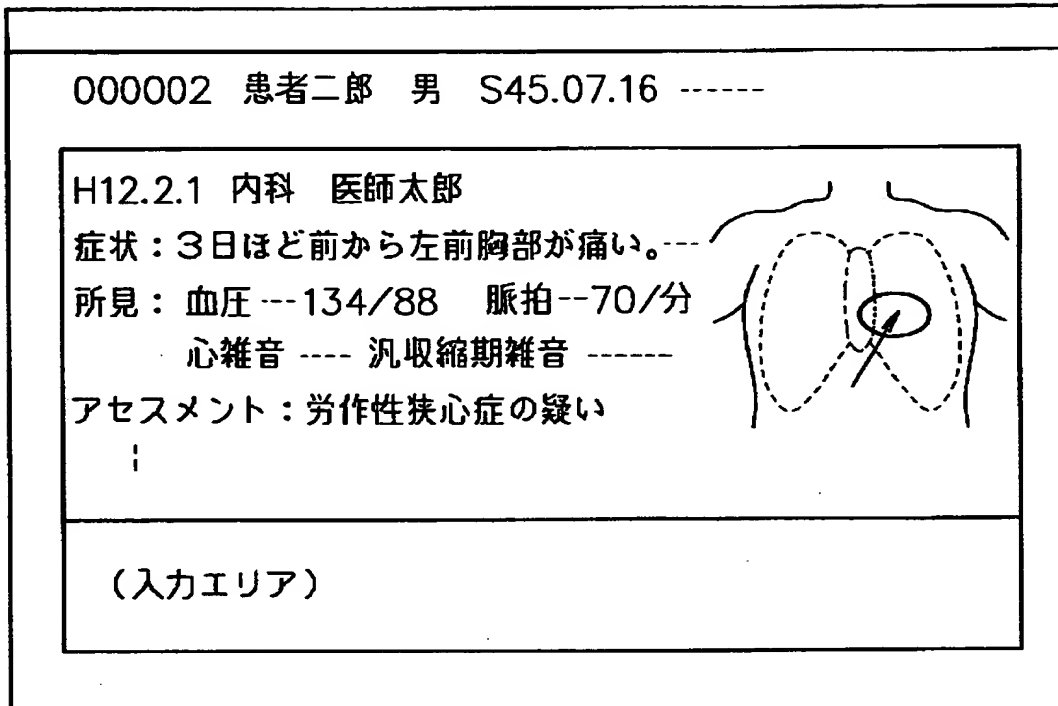 000002 患者二郎 男 S45.07.16 ------
H12.2.1 内科 医師太郎
症状：3日ほど前から左前胸部が痛い。---
所見： 血圧---134/88 脈拍--70/分
心雑音 ---- 汎収縮期雑音 ------
アセスメント：労作性狭心症の疑い
（入力エリア）